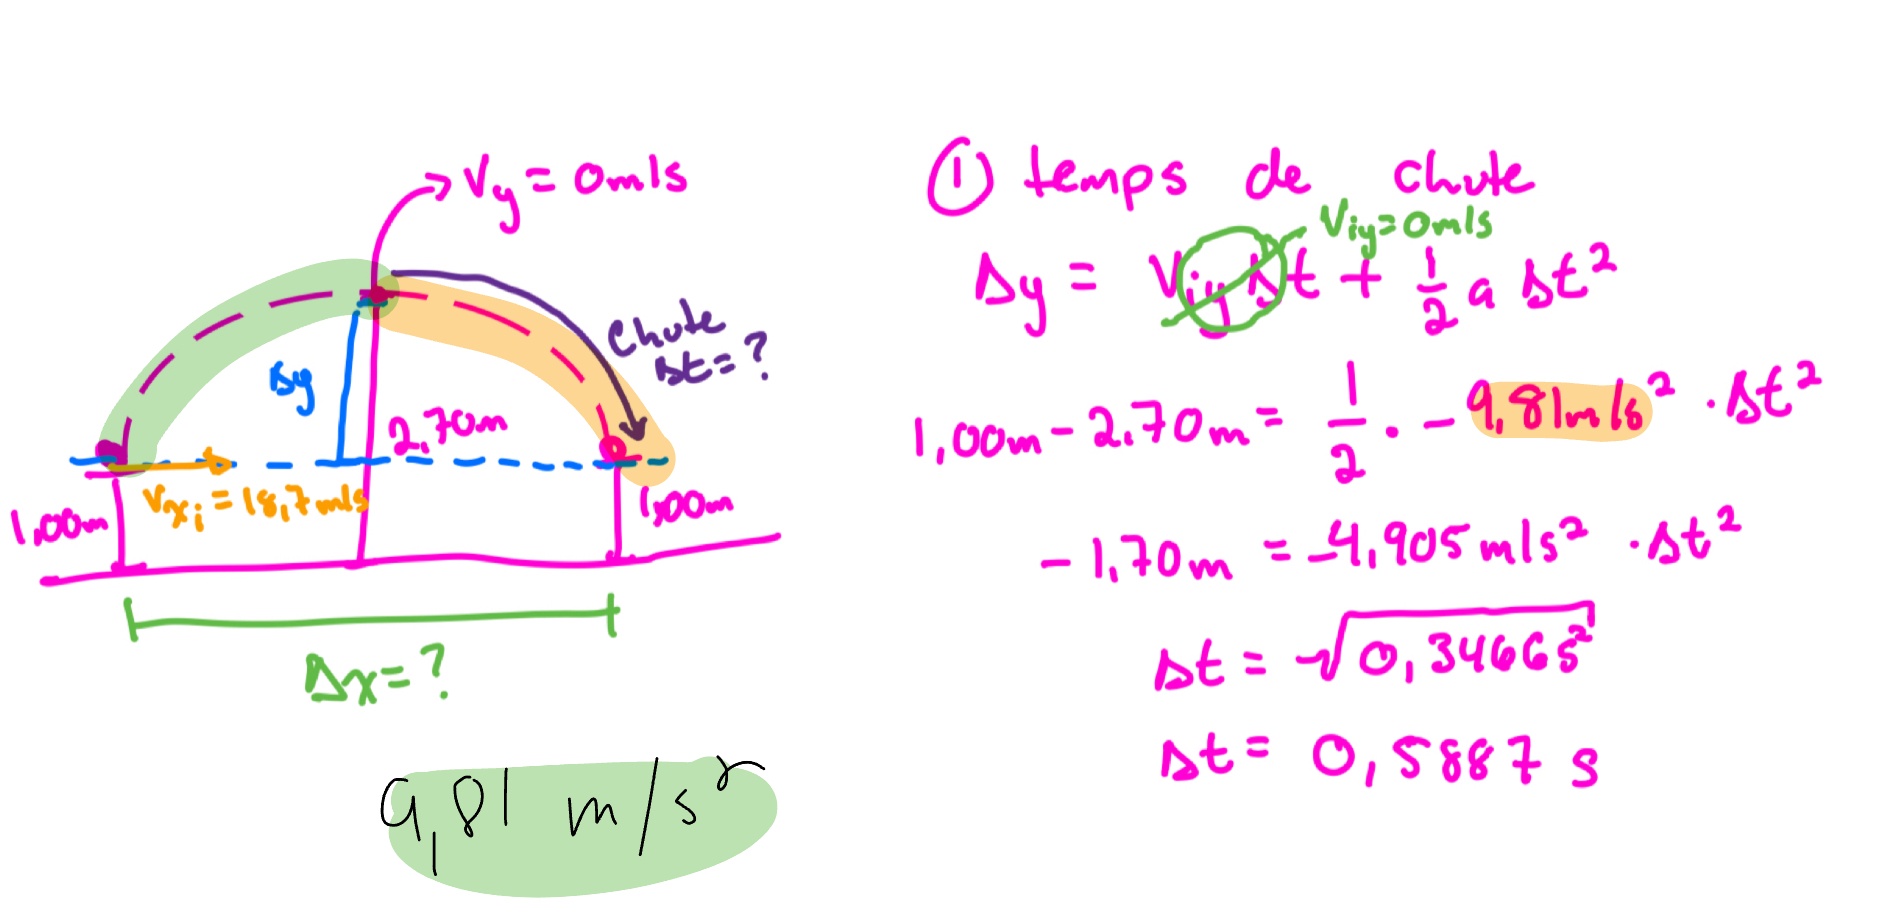 Vy = 0m/s
Chute
Δt = ?
Δy
2,70m
Vxi = 18,7 m/s
1,00m
1,00m
Δx = ?
9,81 m/s²
① temps de chute
Viy = 0m/s
Δy = ViyΔt + 1/2 a Δt²
1,00m - 2,70m = 1/2 · - 9,81m/s² · Δt²
- 1,70m = -4,905 m/s² · Δt²
Δt = √0,3466s²
Δt = 0,5887 s